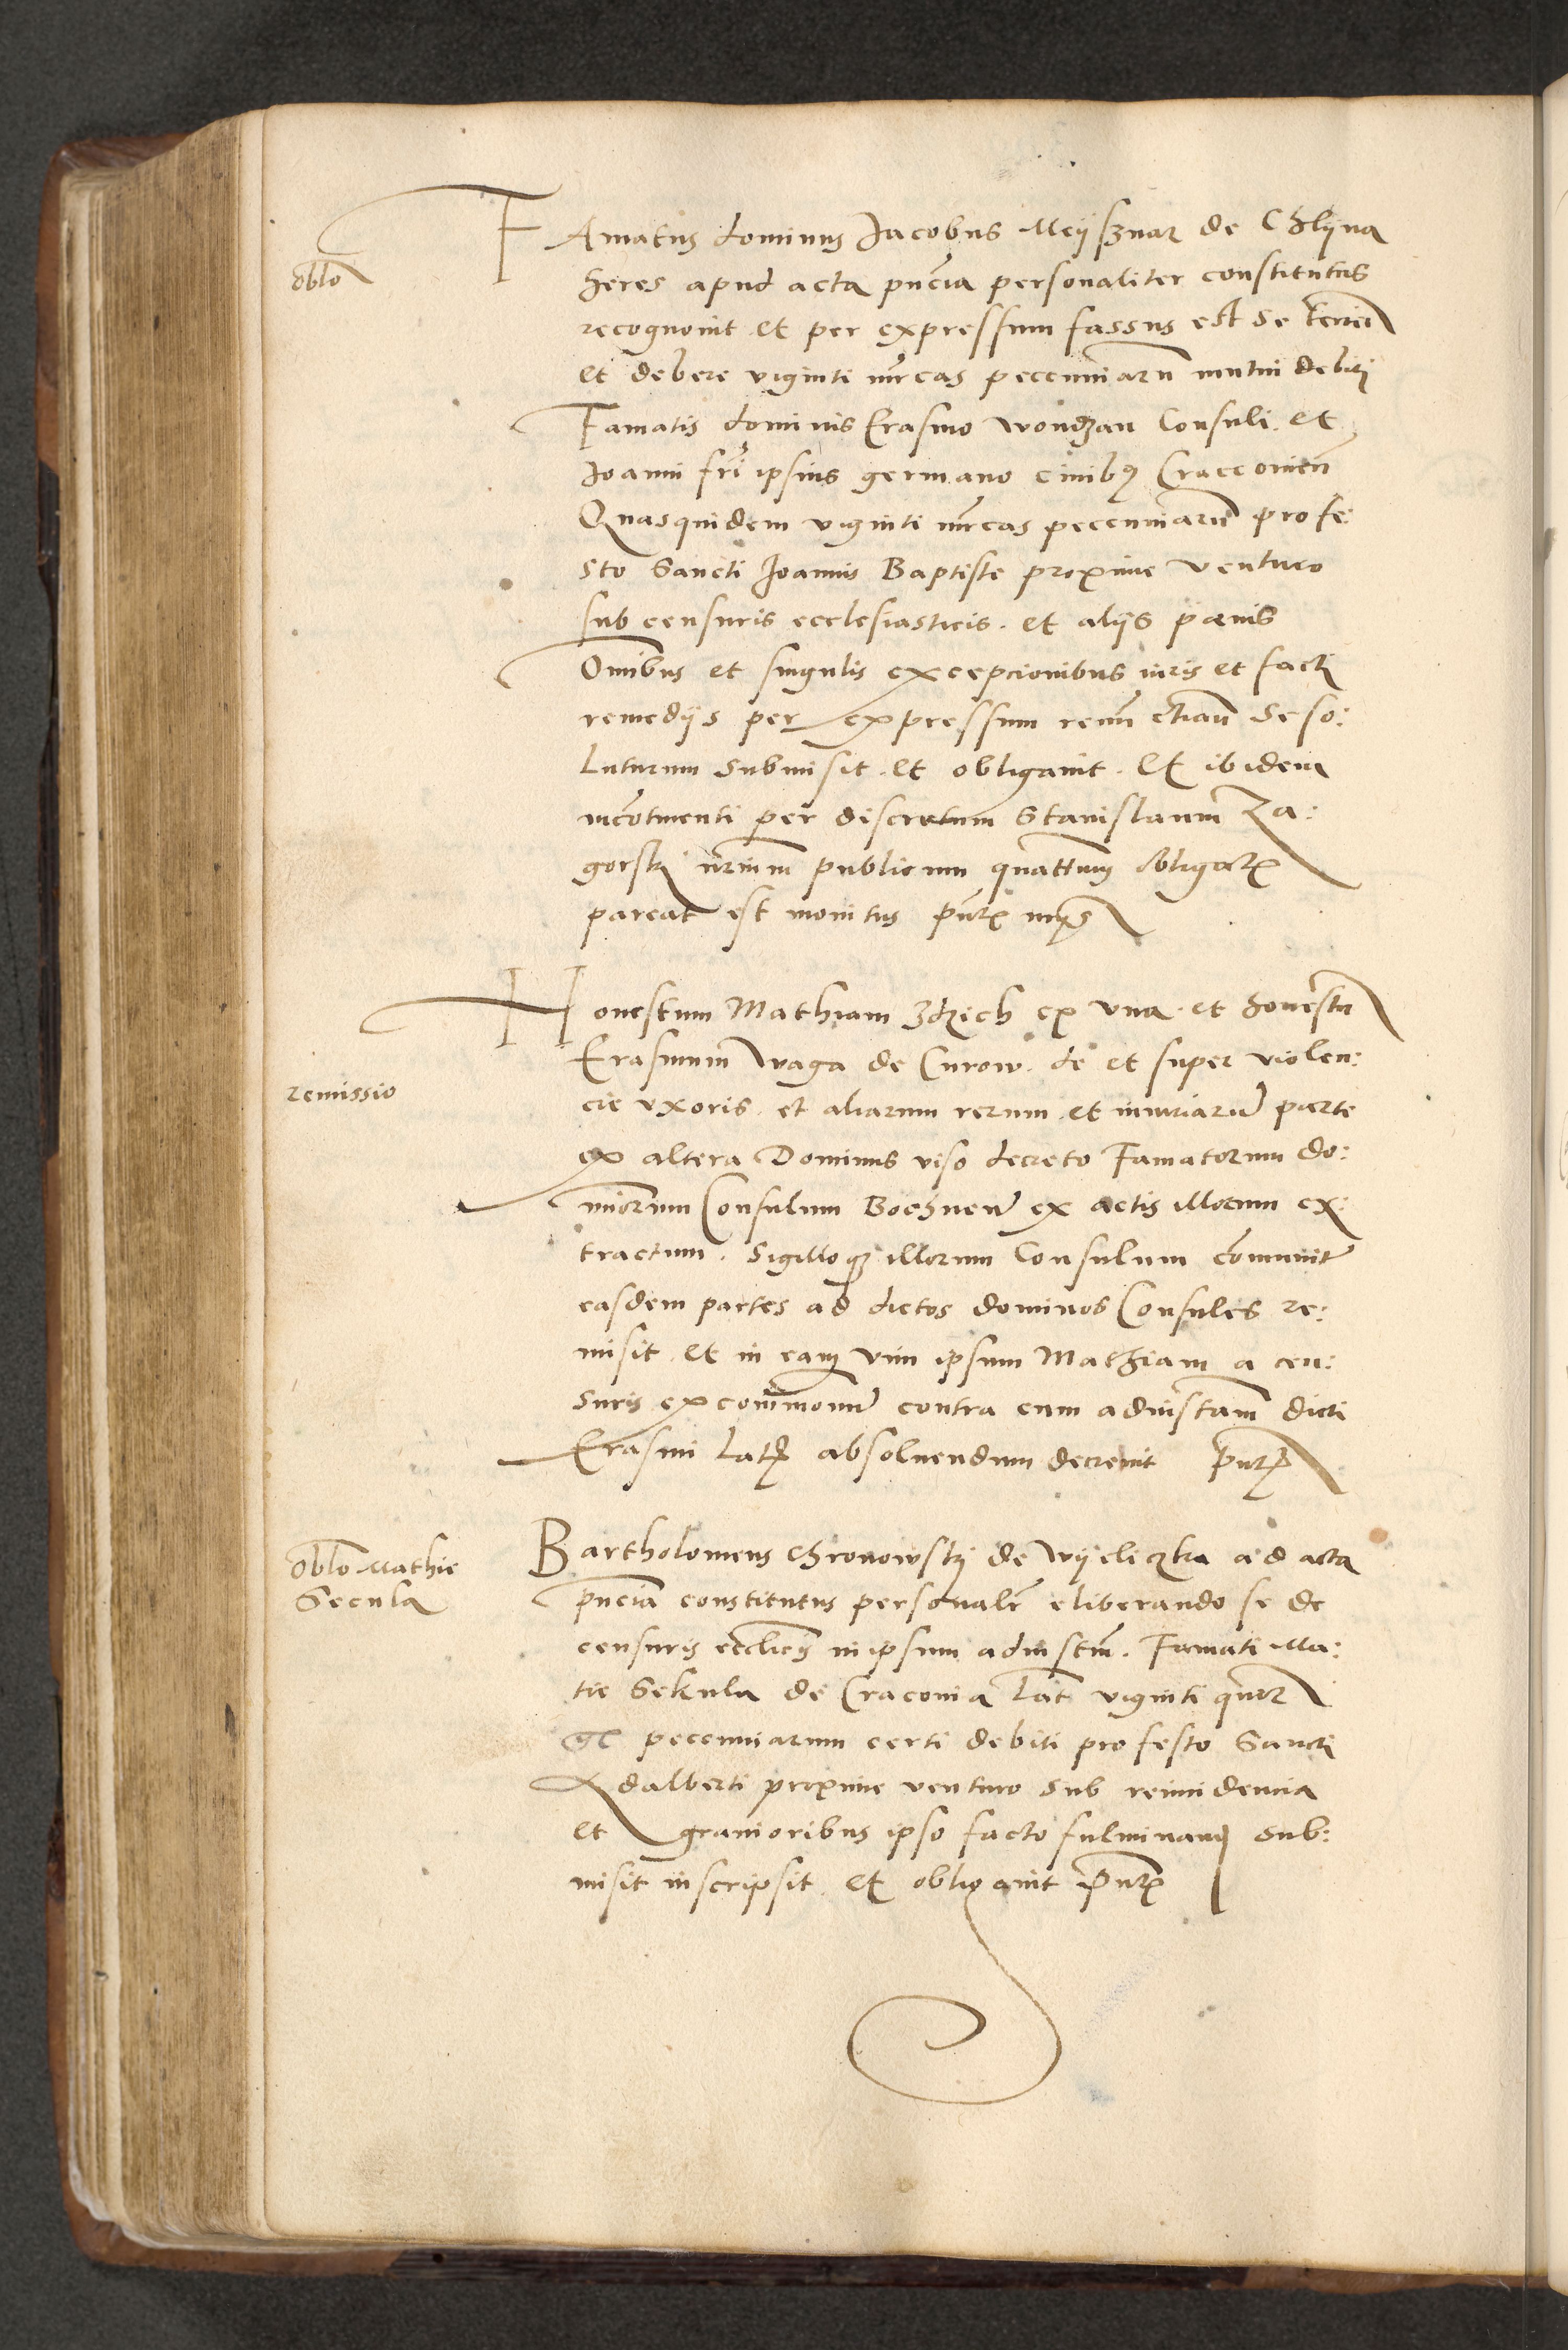 oblo
FAmatus dominus Jacobus Meyssznar de Chlyna
heres apud acta pncia personaliter constitutus
recognouit et per expressum fassus est se teneri
et debere viginti mrcas peccuniaru mutui debiti
Famatis dominis Erasmo wondzan Consuli et
Joanni fri ipsius germano ciuibus Craccouien
Quasquidem viginti mrcas peccuniaru pro fe:
sto Sancti Joannis Baptiste proxime venturo
sub censuris ecclesiasticis. et alijs pœnis
Omibus et singulis excepcionibus iuris et facti
remedijs per expressum renunctians se so:
luturum submisit. et obligauit. Et ibidem
incotinenti per discretum Stanislaum Za:
gorsky nrium publicum quattinus obligacioni
pareat est monitus pntibus
remissio
Honestum Mathiam zdzich ex vna. et honestu
Erasmum waga de Curow. de et super violen:
cie vxoris. et aliarum rerum. et iniuriaru parte
ex altera Dominus viso decreto Famatorum do:
minorum Consulum Bochnen ex actis illorum ex
tractum. Sigilloque illorum Consulum comunit
easdem partes ad dictos dominos Consules re:
misit. et in eam vim ipsum Mathiam a cen:
suris excommonum contra eum ad instam dicti
Erasmi Latis absoluendum decreuit pntibus
Oblo Mathie
Secula
Bartholomeus Chronowsky de Wyeliczka ad acta
pncia constitutus personalr eliberando se de
censuris ecclicis in ipsum ad instm. Famati Ma:
tie Sekula de Craconia Lat viginti quatuor
gr peccuniarum certi debiti pro festo Sancti
Adalberti proxime venturo sub reincidencia
et grauioribus ipso facto fulminand sub:
misit inscripsit et obligauit pntibus